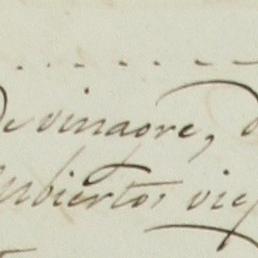 de vinagre, d
cubiertos viej